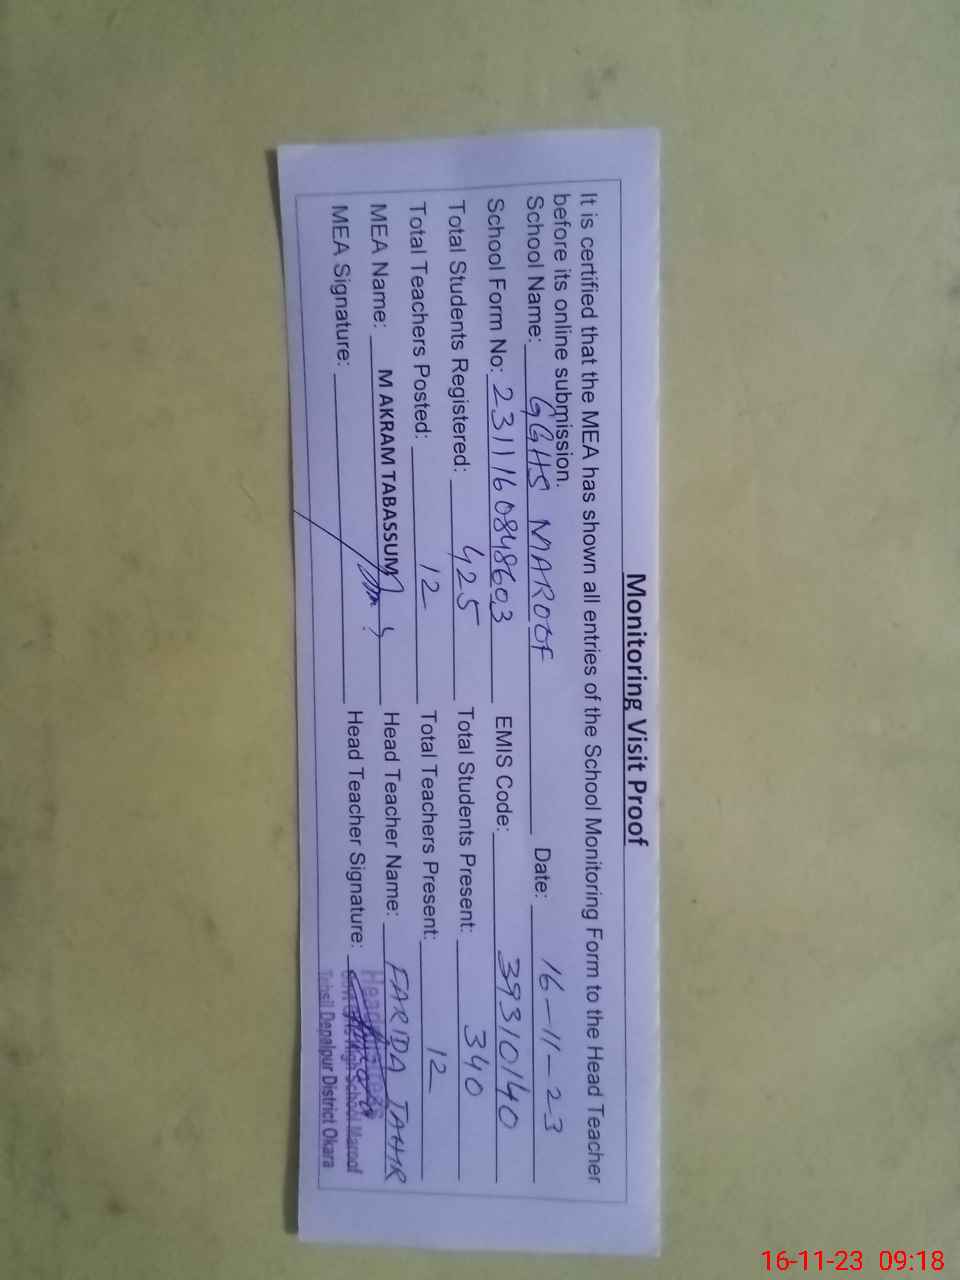 Monitoring Visit Proof
It is certified that the MEA has shown all entries of the School Monitoring Form to the Head Teacher
before its online submission.
School Name: GGHS MAROOF Date: 16-11-23
School Form No: 2311160848603 EMIS Code: 39310140
Total Students Registered: 425 Total Students Present: 340
Total Teachers Posted: 12 Total Teachers Present: 12
MEA Name: M AKRAM TABASSUM Head Teacher Name: FARIDA TAHIR
MEA Signature: Head Teacher Signature:
Headmistress
Govt Girls High School Maroof
Tehsil Depalpur District Okara
16-11-23 09:18